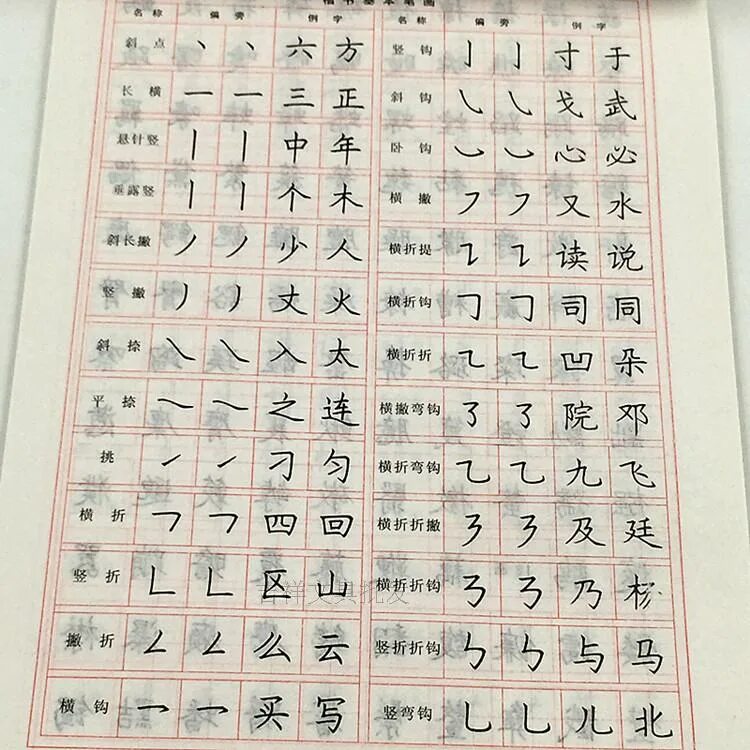 楷书基本笔画
名称 偏旁 例字
斜点 丶 丶 六 方
长横 一 一 三 正
悬针竖 丨 丨 中 年
垂露竖 丨 丨 个 木
斜长撇 丿 丿 少 人
竖撇 丿 丿 丈 火
斜捺 ㇏ ㇏ 入 太
平捺 ㇏ ㇏ 之 连
挑 ㇀ ㇀ 刁 匀
横折 ㇕ ㇕ 四 回
竖折 ㇗ ㇗ 区 山
撇折 ㇜ ㇜ 么 云
横钩 ㇖ ㇖ 买 写
名称 偏旁 例字
竖钩 亅 亅 寸 于
斜钩 ㇂ ㇂ 戈 武
卧钩 ㇃ ㇃ 心 必
横撇 ㇇ ㇇ 又 水
横折提 ㇊ ㇊ 读 说
横折钩 ㇆ ㇆ 司 同
横折折 ㇍ ㇍ 凹 朵
横撇弯钩 ㇌ ㇌ 院 邓
横折弯钩 ㇈ ㇈ 九 飞
横折折撇 ㇋ ㇋ 及 廷
横折折钩 ㇡ ㇡ 乃
竖折折钩 ㇉ ㇉ 与 马
竖弯钩 乚 乚 儿 北
吉祥文具批发